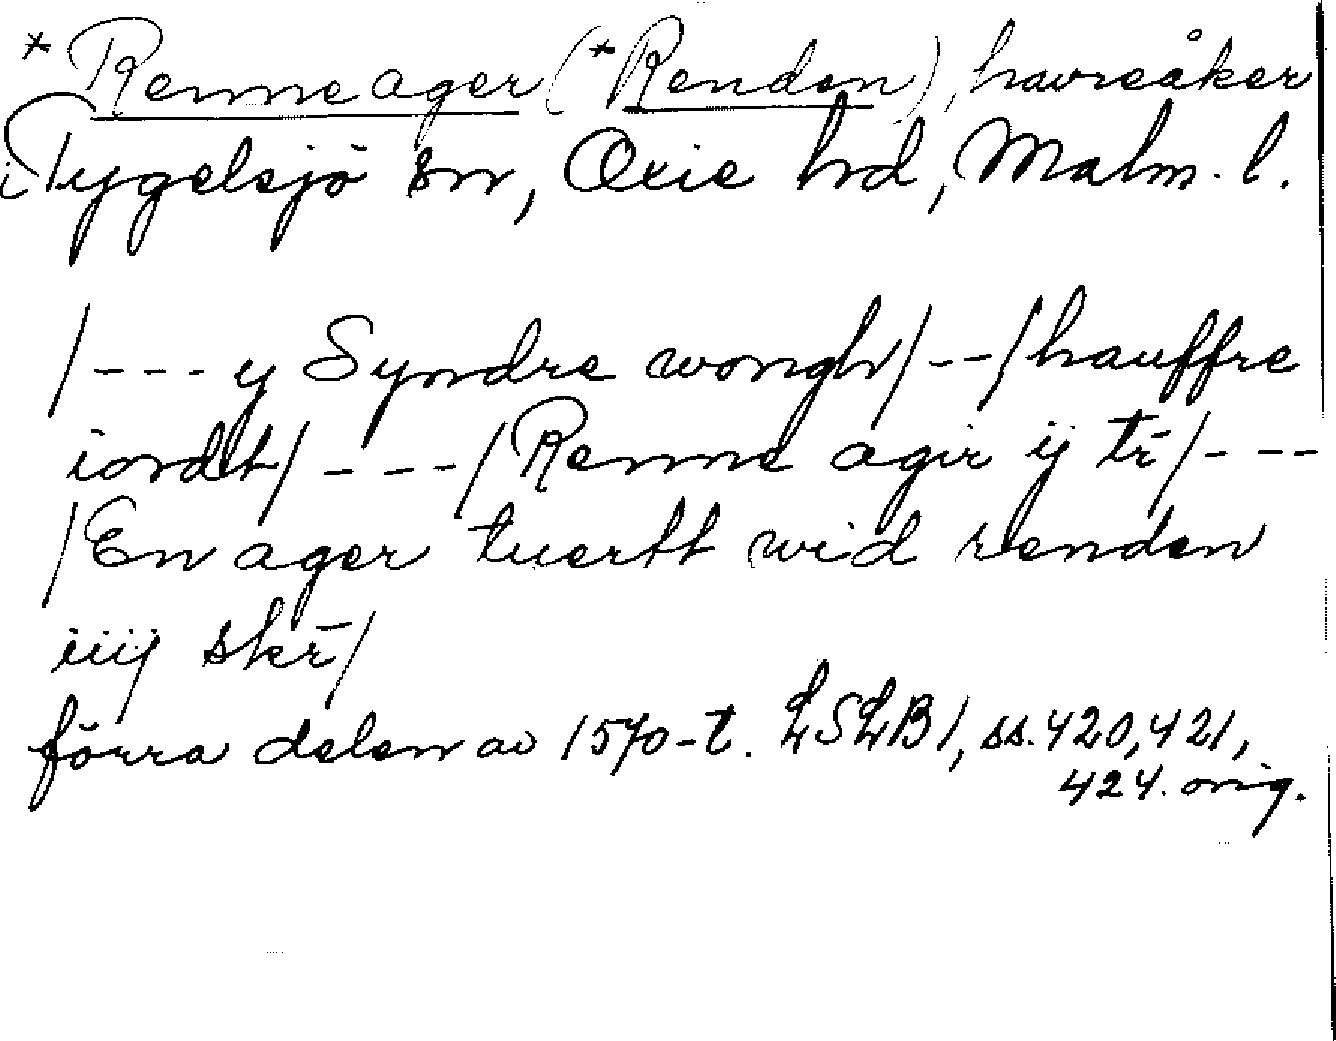 * Renneager (*Renden), havreåker
i Tygelsjö sn, Oxie hd, Malm. l.
/---y Syndre wongh/--/hauffre
iordt/----/Renne agir ij tr̄/---
/En ager tuertt wid renden
iiij skr̄/
förra delen av 1570-t. LSLB1, ss. 420, 421,
424. orig.